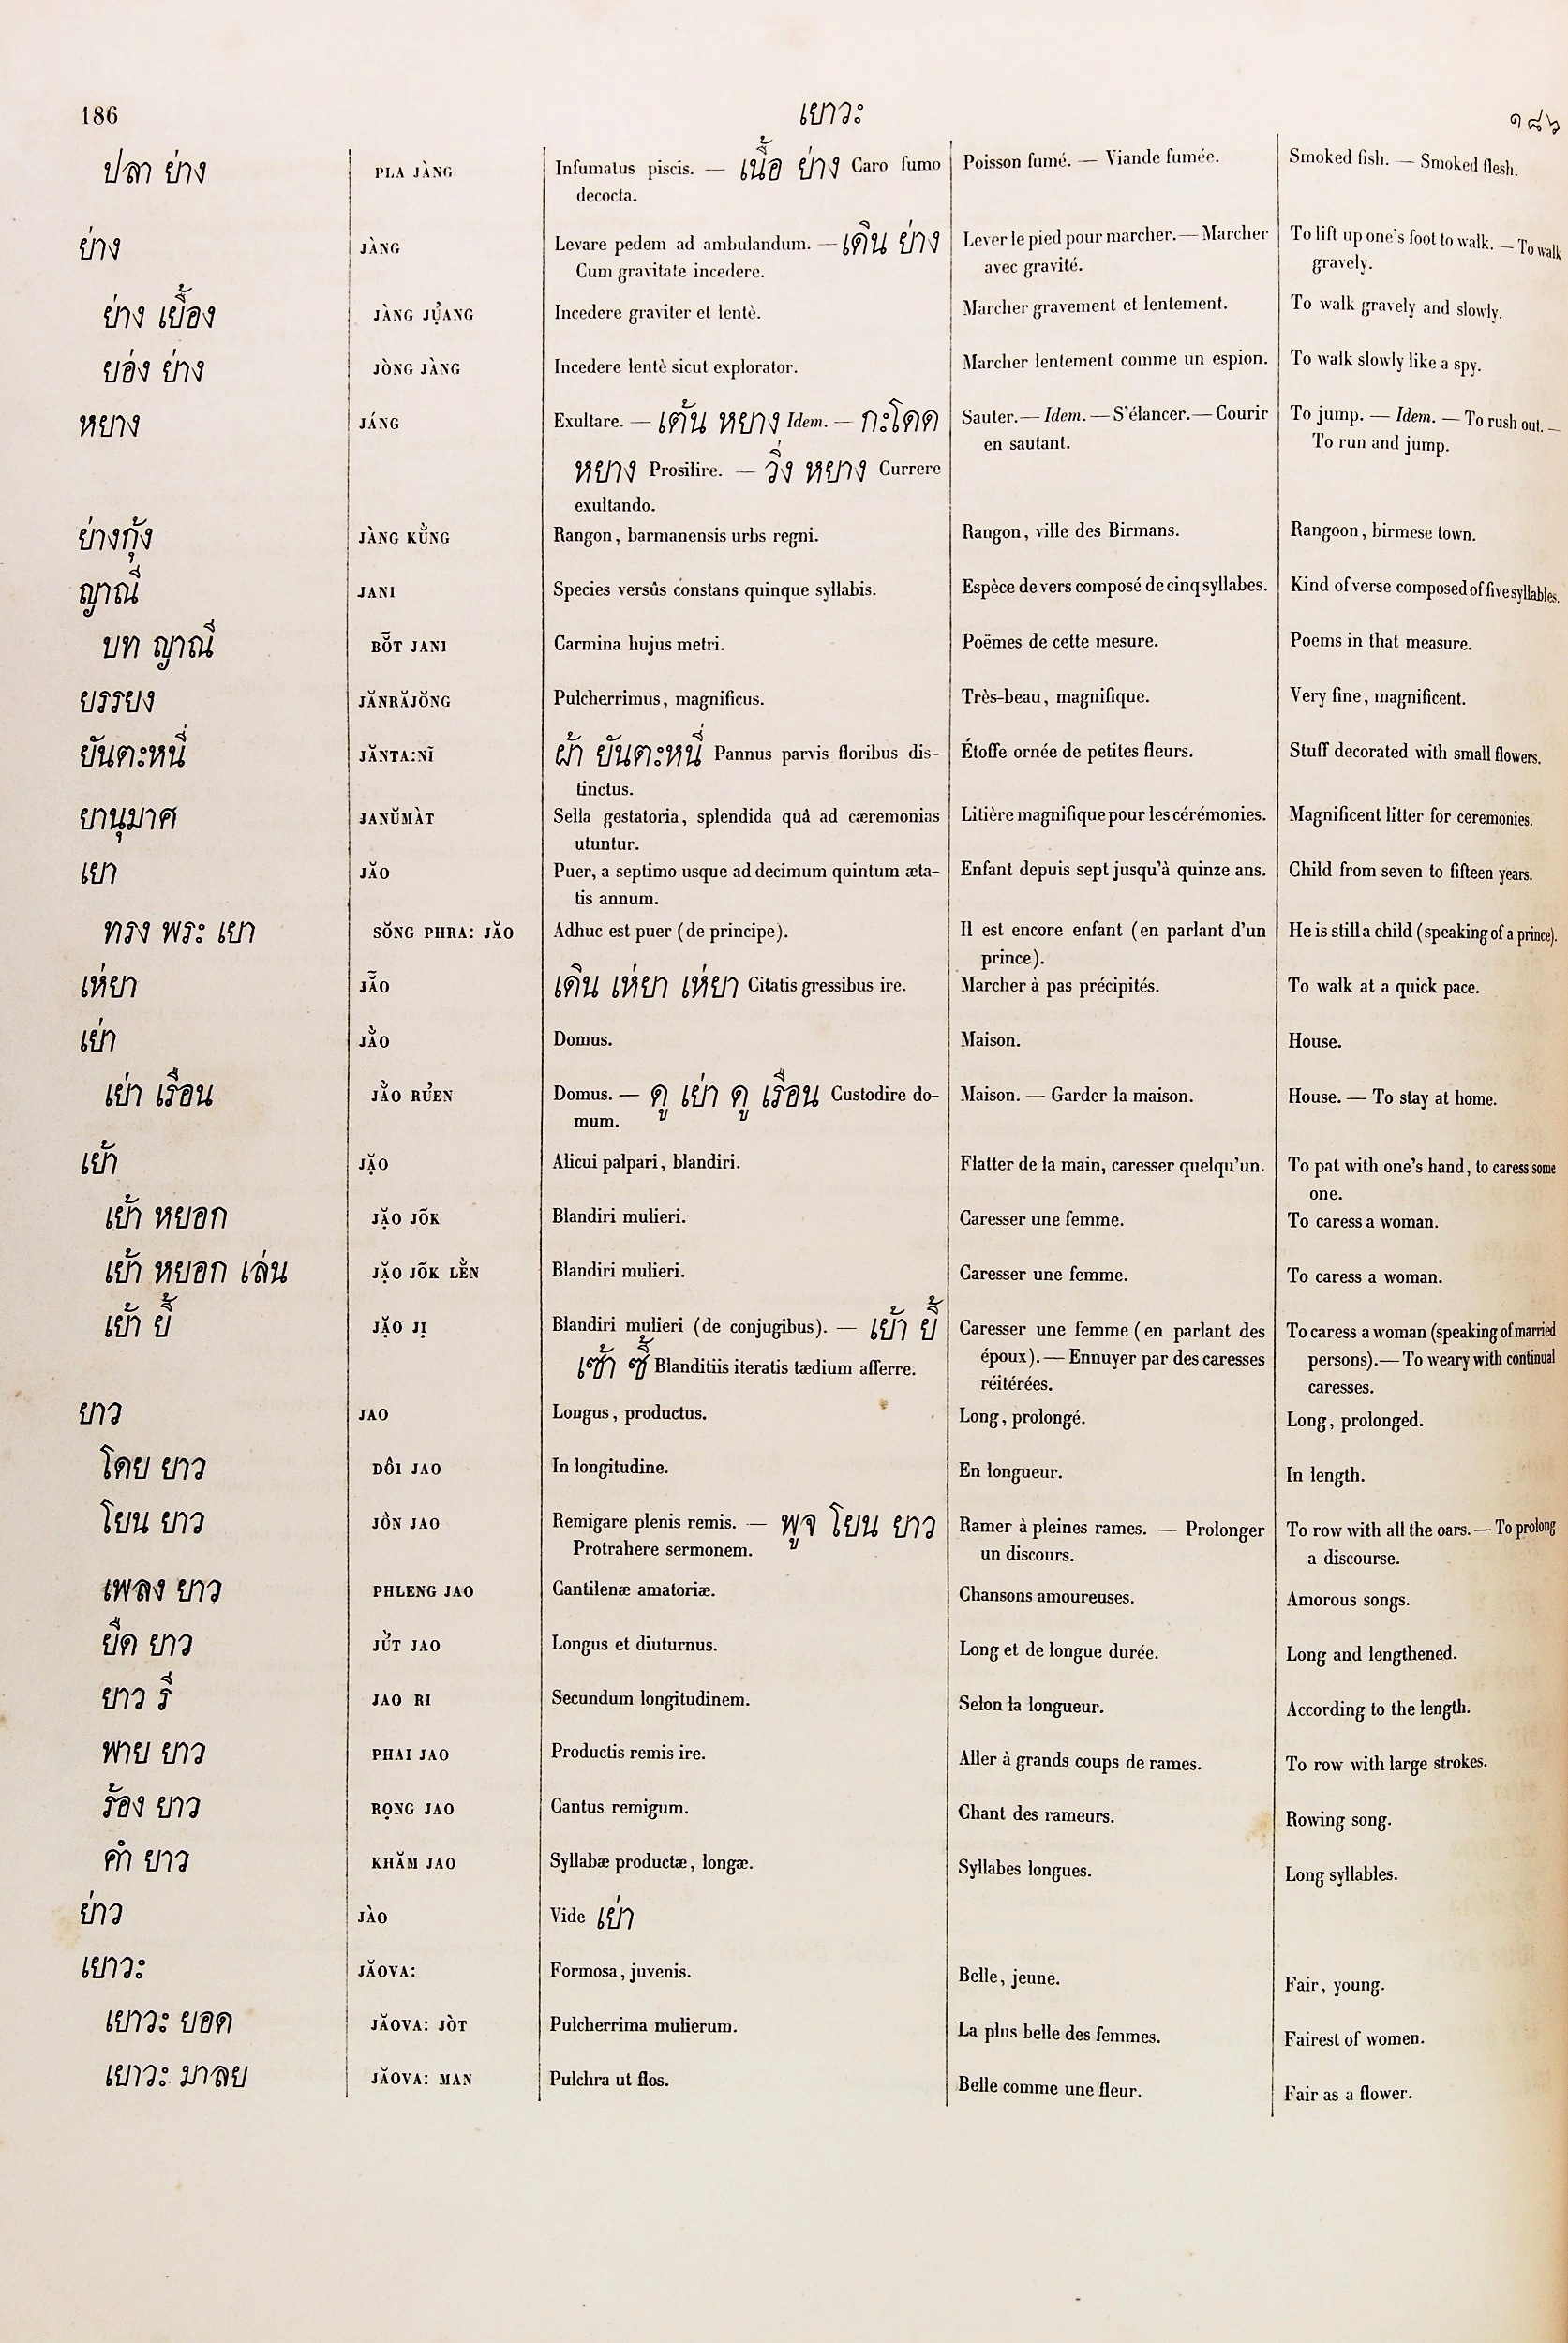 186 เยาวะ ๑๘๖
ปลา ย่าง PLA JÀNG Infumatus piscis. — เนื้อ ย่าง Caro fumo Poisson fumé. — Viande fumée. Smoked fish. — Smoked flesh.
decocta.
ย่าง JÀNG Levare pedem ad ambulandum. — เดิน ย่าง Lever le pied pour marcher. — Marcher To lift up one's foot to walk. — To walk
Cum gravitate incedere. avec gravité. gravely.
ย่าง เยื้อง JÀNG JỤ̉ANG Incedere graviter et lentè. Marcher gravement et lentement. To walk gravely and slowly.
ยอ่ง ย่าง JÒNG JÀNG Incedere lentè sicut explorator. Marcher lentement comme un espion. To walk slowly like a spy.
หยาง JÁNG Exultare. — เต้น หยาง Idem. — กะโดด Sauter. — Idem. — S'élancer. — Courir To jump. — Idem. — To rush out. —
หยาง Prosilire. — วิ่ง หยาง Currere en sautant. To run and jump.
exultando.
ย่างกุ้ง JÀNG KŬ̀NG Rangon, barmanensis urbs regni. Rangon, ville des Birmans. Rangoon, birmese town.
ญาณี JANI Species versûs constans quinque syllabis. Espèce de vers composé de cinq syllabes. Kind of verse composed of five syllables.
บท ญาณี BŎ̃T JANI Carmina hujus metri. Poëmes de cette mesure. Poems in that measure.
ยรรยง JĂNRĂJŎNG Pulcherrimus, magnificus. Très-beau, magnifique. Very fine, magnificent.
ยันตะหนี่ JĂNTA:NĨ ผ้า ยันตะหนี่ Pannus parvis floribus dis- Étoffe ornée de petites fleurs. Stuff decorated with small flowers.
tinctus.
ยานุมาศ JANŬMÀT Sella gestatoria, splendida quâ ad cæremonias Litière magnifique pour les cérémonies. Magnificent litter for ceremonies.
utuntur.
เยา JĂO Puer, a septimo usque ad decimum quintum æta- Enfant depuis sept jusqu'à quinze ans. Child from seven to fifteen years.
tis annum.
ทรง พระ เยา SŎNG PHRA: JĂO Adhuc est puer (de principe). Il est encore enfant (en parlant d'un He is still a child (speaking of a prince).
prince).
เห่ยา JẴO เดิน เห่ยา เห่ยา Citatis gressibus ire. Marcher à pas précipités. To walk at a quick pace.
เย่า JẰO Domus. Maison. House.
เย่า เรือน JẰO RỦEN Domus. — ดู เย่า ดู เรือน Custodire do- Maison. — Garder la maison. House. — To stay at home.
mum.
เย้า JẶO Alicui palpari, blandiri. Flatter de la main, caresser quelqu'un. To pat with one's hand, to caress some
one.
เย้า หยอก JẶO JÕK Blandiri mulieri. Caresser une femme. To caress a woman.
เย้า หยอก เล่น JẶO JÕK LĔ̀N Blandiri mulieri. Caresser une femme. To caress a woman.
เย้า ยี้ JẶO JỊ Blandiri mulieri (de conjugibus). — เย้า ยี้ Caresser une femme (en parlant des To caress a woman (speaking of married
เซ้า ซี้ Blanditiis iteratis tædium afferre. époux). — Ennuyer par des caresses persons). — To weary with continual
réitérées. caresses.
ยาว JAO Longus, productus. Long, prolongé. Long, prolonged.
โดย ยาว DÔI JAO In longitudine. En longueur. In length.
โยน ยาว JÔN JAO Remigare plenis remis. — พูจ โยน ยาว Ramer à pleines rames. — Prolonger To row with all the oars. — To prolong
Protrahere sermonem. un discours. a discourse.
เพลง ยาว PHLENG JAO Cantilenæ amatoriæ. Chansons amoureuses. Amorous songs.
ยืด ยาว JỦ̀T JAO Longus et diuturnus. Long et de longue durée. Long and lengthened.
ยาว รี JAO RI Secundum longitudinem. Selon la longueur. According to the length.
พาย ยาว PHAI JAO Productis remis ire. Aller à grands coups de rames. To row with large strokes.
ร้อง ยาว RỌNG JAO Cantus remigum. Chant des rameurs. Rowing song.
คำ ยาว KHĂM JAO Syllabæ productæ, longæ. Syllabes longues. Long syllables.
ย่าว JÀO Vide เย่า
เยาวะ JĂOVA: Formosa, juvenis. Belle, jeune. Fair, young.
เยาวะ ยอด JĂOVA: JÒT Pulcherrima mulierum. La plus belle des femmes. Fairest of women.
เยาวะ มาลย JĂOVA: MAN Pulchra ut flos. Belle comme une fleur. Fair as a flower.